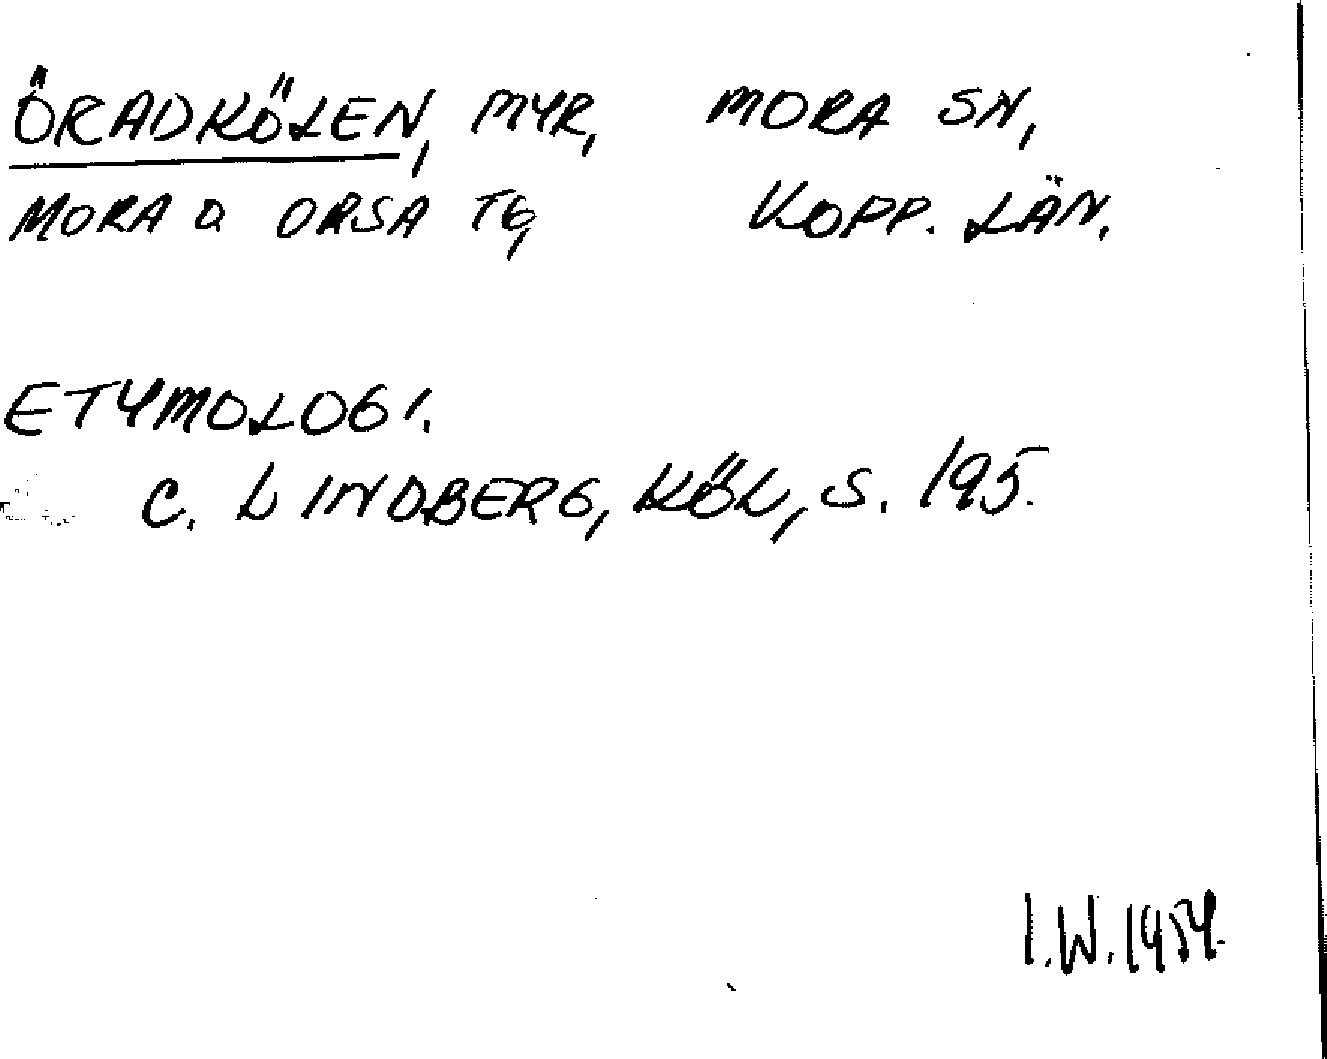 ÖRADKÖLEN, MYR, MORA SN,
MORA O ORSA TG, KOPP. LÄN.
ETYMOLOGI.
C. LINDBERG, KÖL, S. 195.
I.W. 1954.